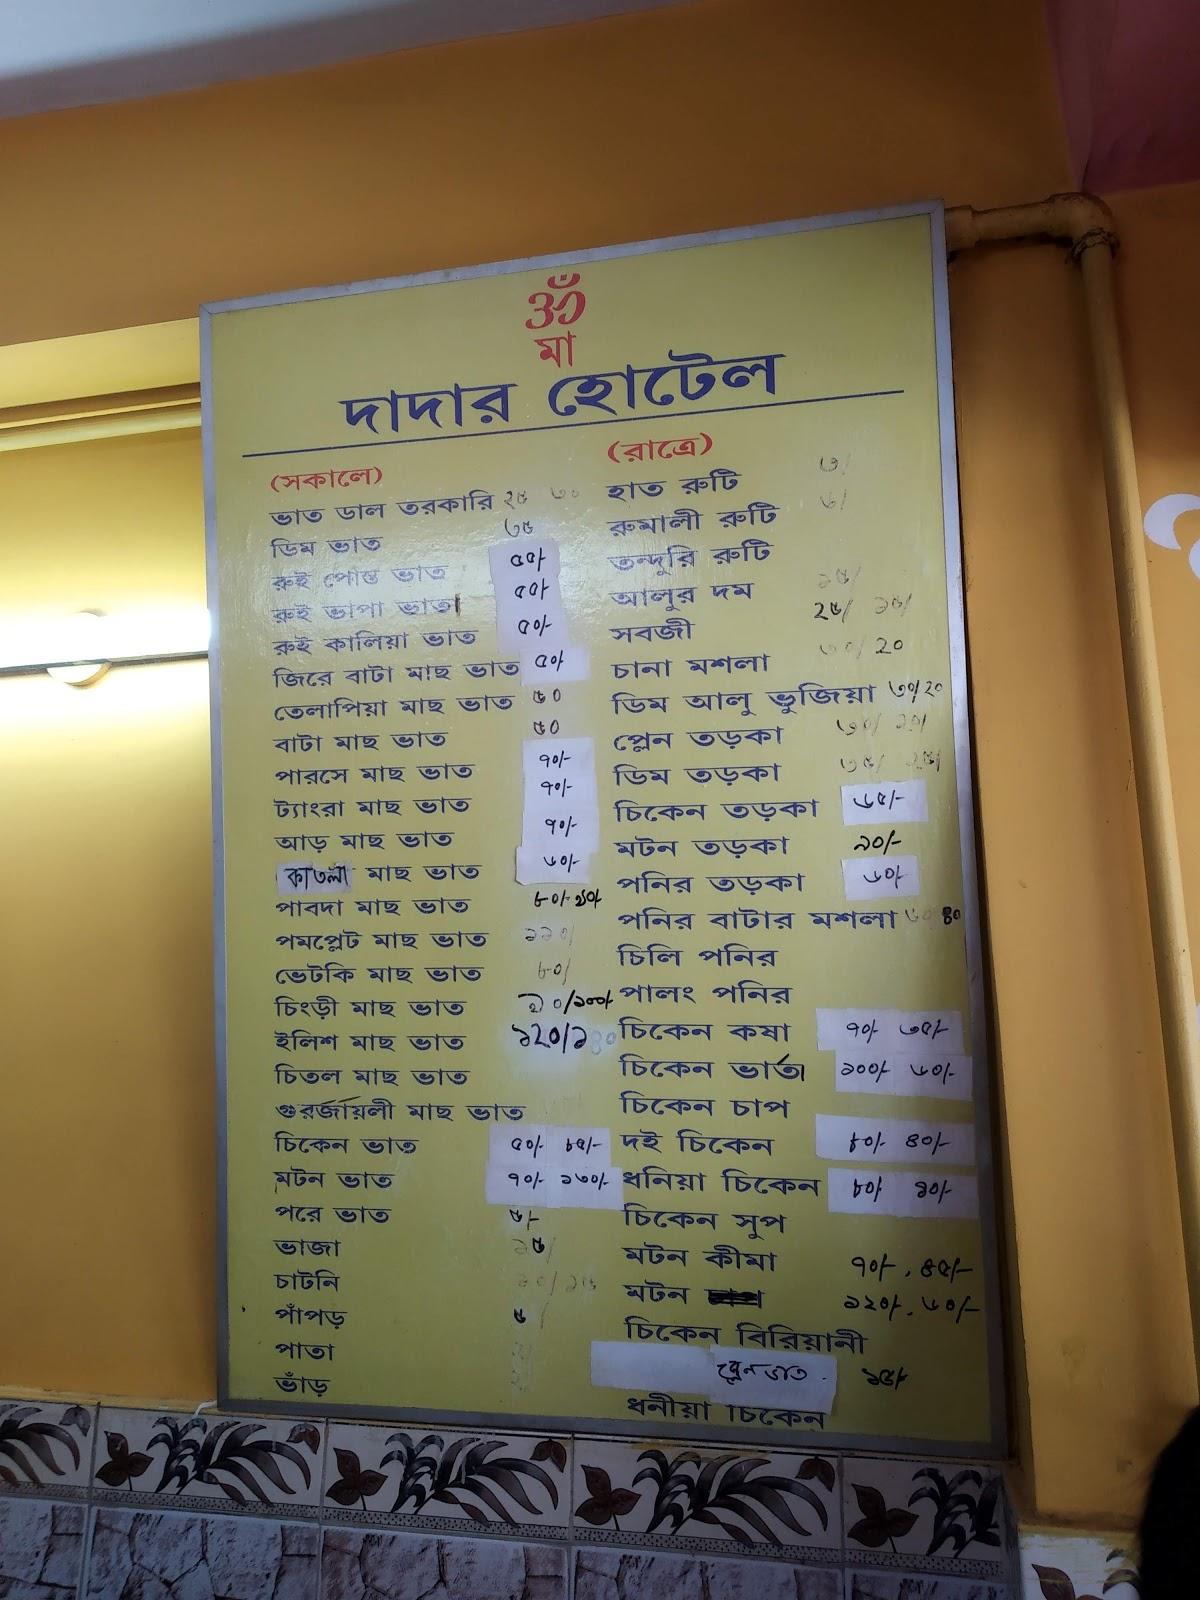 ওঁ
মা
দাদার হোটেল
(সকালে)
ভাত ডাল তরকারি ২৫ ৩০
ডিম ভাত ৩৫
রুই পোস্ত ভাত ৫৫/-
রুই ভাপা ভাত ৫৫/-
রুই কালিয়া ভাত ৫০/-
জিরে বাটা মাছ ভাত ৫০/-
তেলাপিয়া মাছ ভাত ৫০
বাটা মাছ ভাত ৫০
পারসে মাছ ভাত ৭০/-
ট্যাংরা মাছ ভাত ৭০/-
আড় মাছ ভাত ৭০/-
কাতলা মাছ ভাত ৬০/-
পাবদা মাছ ভাত ৮০/-
পমপ্লেট মাছ ভাত ১১০/
ভেটকি মাছ ভাত ৮০/
চিংড়ী মাছ ভাত /১০০/-
ইলিশ মাছ ভাত ১২০/
চিতল মাছ ভাত
গুরর্জায়লী মাছ ভাত
চিকেন ভাত ৫০/- ৮৫/-
মটন ভাত ৭০/- ১৩০/-
পরে ভাত ৫/-
ভাজা
চাটনি
পাঁপড় ৫/
পাতা
ভাঁড়
(রাত্রে)
হাত রুটি ৩/
রুমালী রুটি ৬/
তন্দুরি রুটি
আলুর দম
সবজী ২৫/ ১৫/
চানা মশলা ৩০/ ২০
ডিম আলু ভুজিয়া ৩০/ ২০
প্লেন তড়কা ৩০/ ২০/
ডিম তড়কা ৩৫/ ২৫/
চিকেন তড়কা ৬৫/-
মটন তড়কা ৯০/-
পনির তড়কা ৬০/-
পনির বাটার মশলা ৪০
চিলি পনির
পালং পনির
চিকেন কষা ৭০/- ৩৫/-
চিকেন ভার্তা ১০০/- ৬০/-
চিকেন চাপ
দই চিকেন ৮০/- ৪০/-
ধনিয়া চিকেন ৮০/- ৪০/-
চিকেন সুপ
মটন কীমা ৭০/-, ৪৫/-
মটন ১২০/-, ৬০/-
চিকেন বিরিয়ানী
প্লেন ভাত ১৫/-
ধনীয়া চিকেন